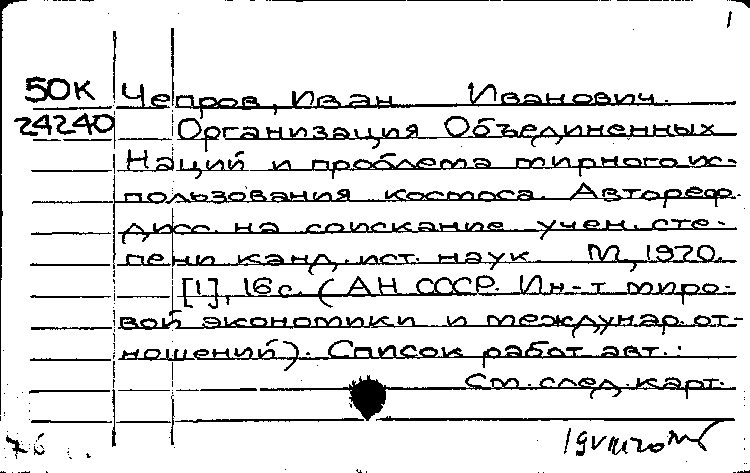 1
50К Чепров, Иван Иванович.
24240 Организация Объединенных
Наций и проблема мирного ис-
пользования космоса. Автореф.
дисс. на соискание учен. сте-
пени канд. ист. наук. М., 1970.
[1], 16 с. (АН СССР. Ин-т миро-
вой экономики и междунар. от-
ношений). Список работ авт.:
См. след. карт.
76